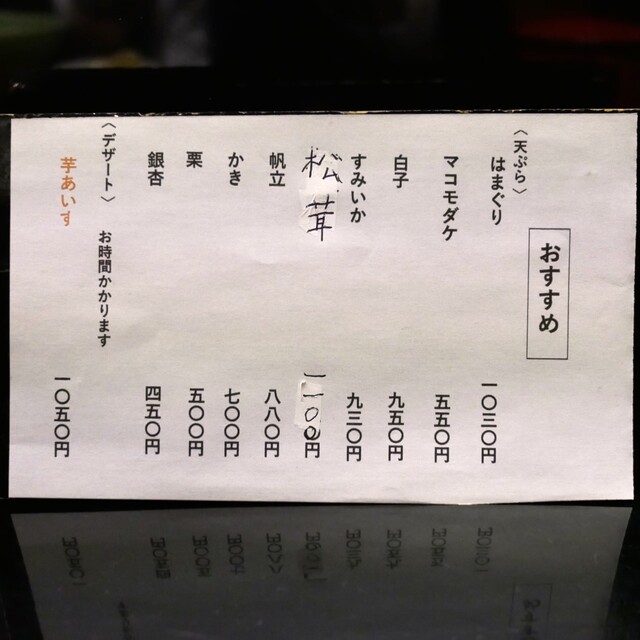 おすすめ
〈天ぷら〉
はまぐり 一〇三〇円
マコモダケ 五五〇円
白子 九五〇円
すみいか 九三〇円
松茸 一一〇〇円
帆立 八八〇円
かき 七〇〇円
栗 五〇〇円
銀杏 四五〇円
〈デザート〉 お時間かかります
芋あいす 一〇五〇円